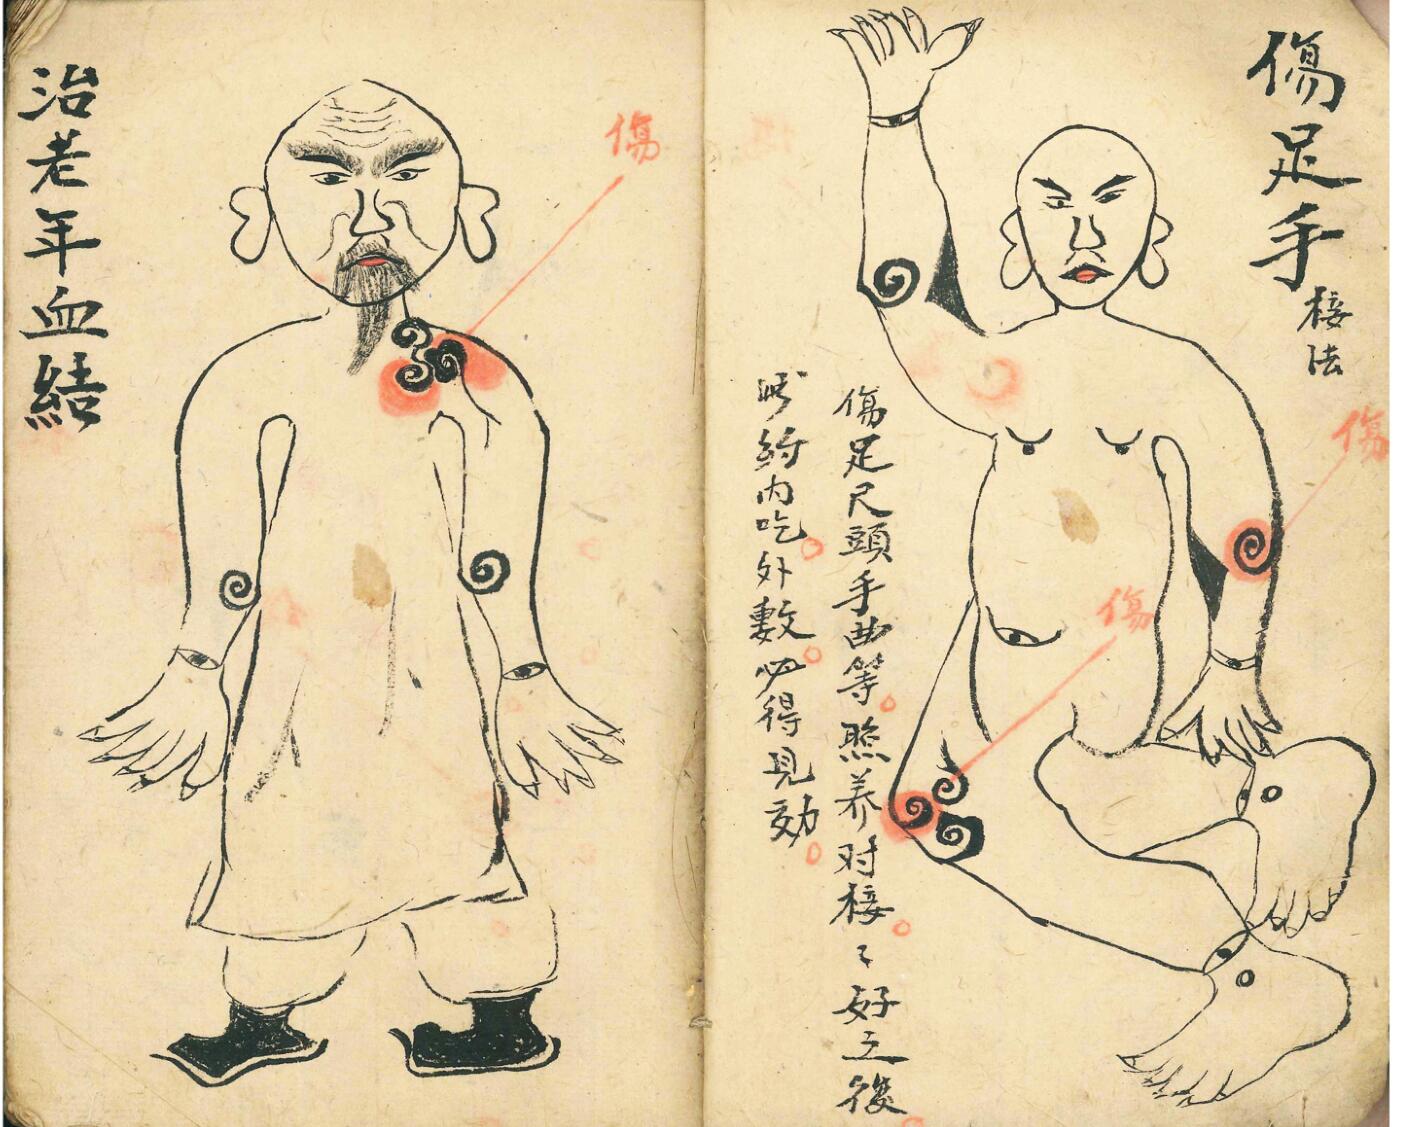 傷足手
接法
傷
傷
傷足尺頭手曲等照养对接〻好之後
内吃外敷必得見効
傷
治老年血結